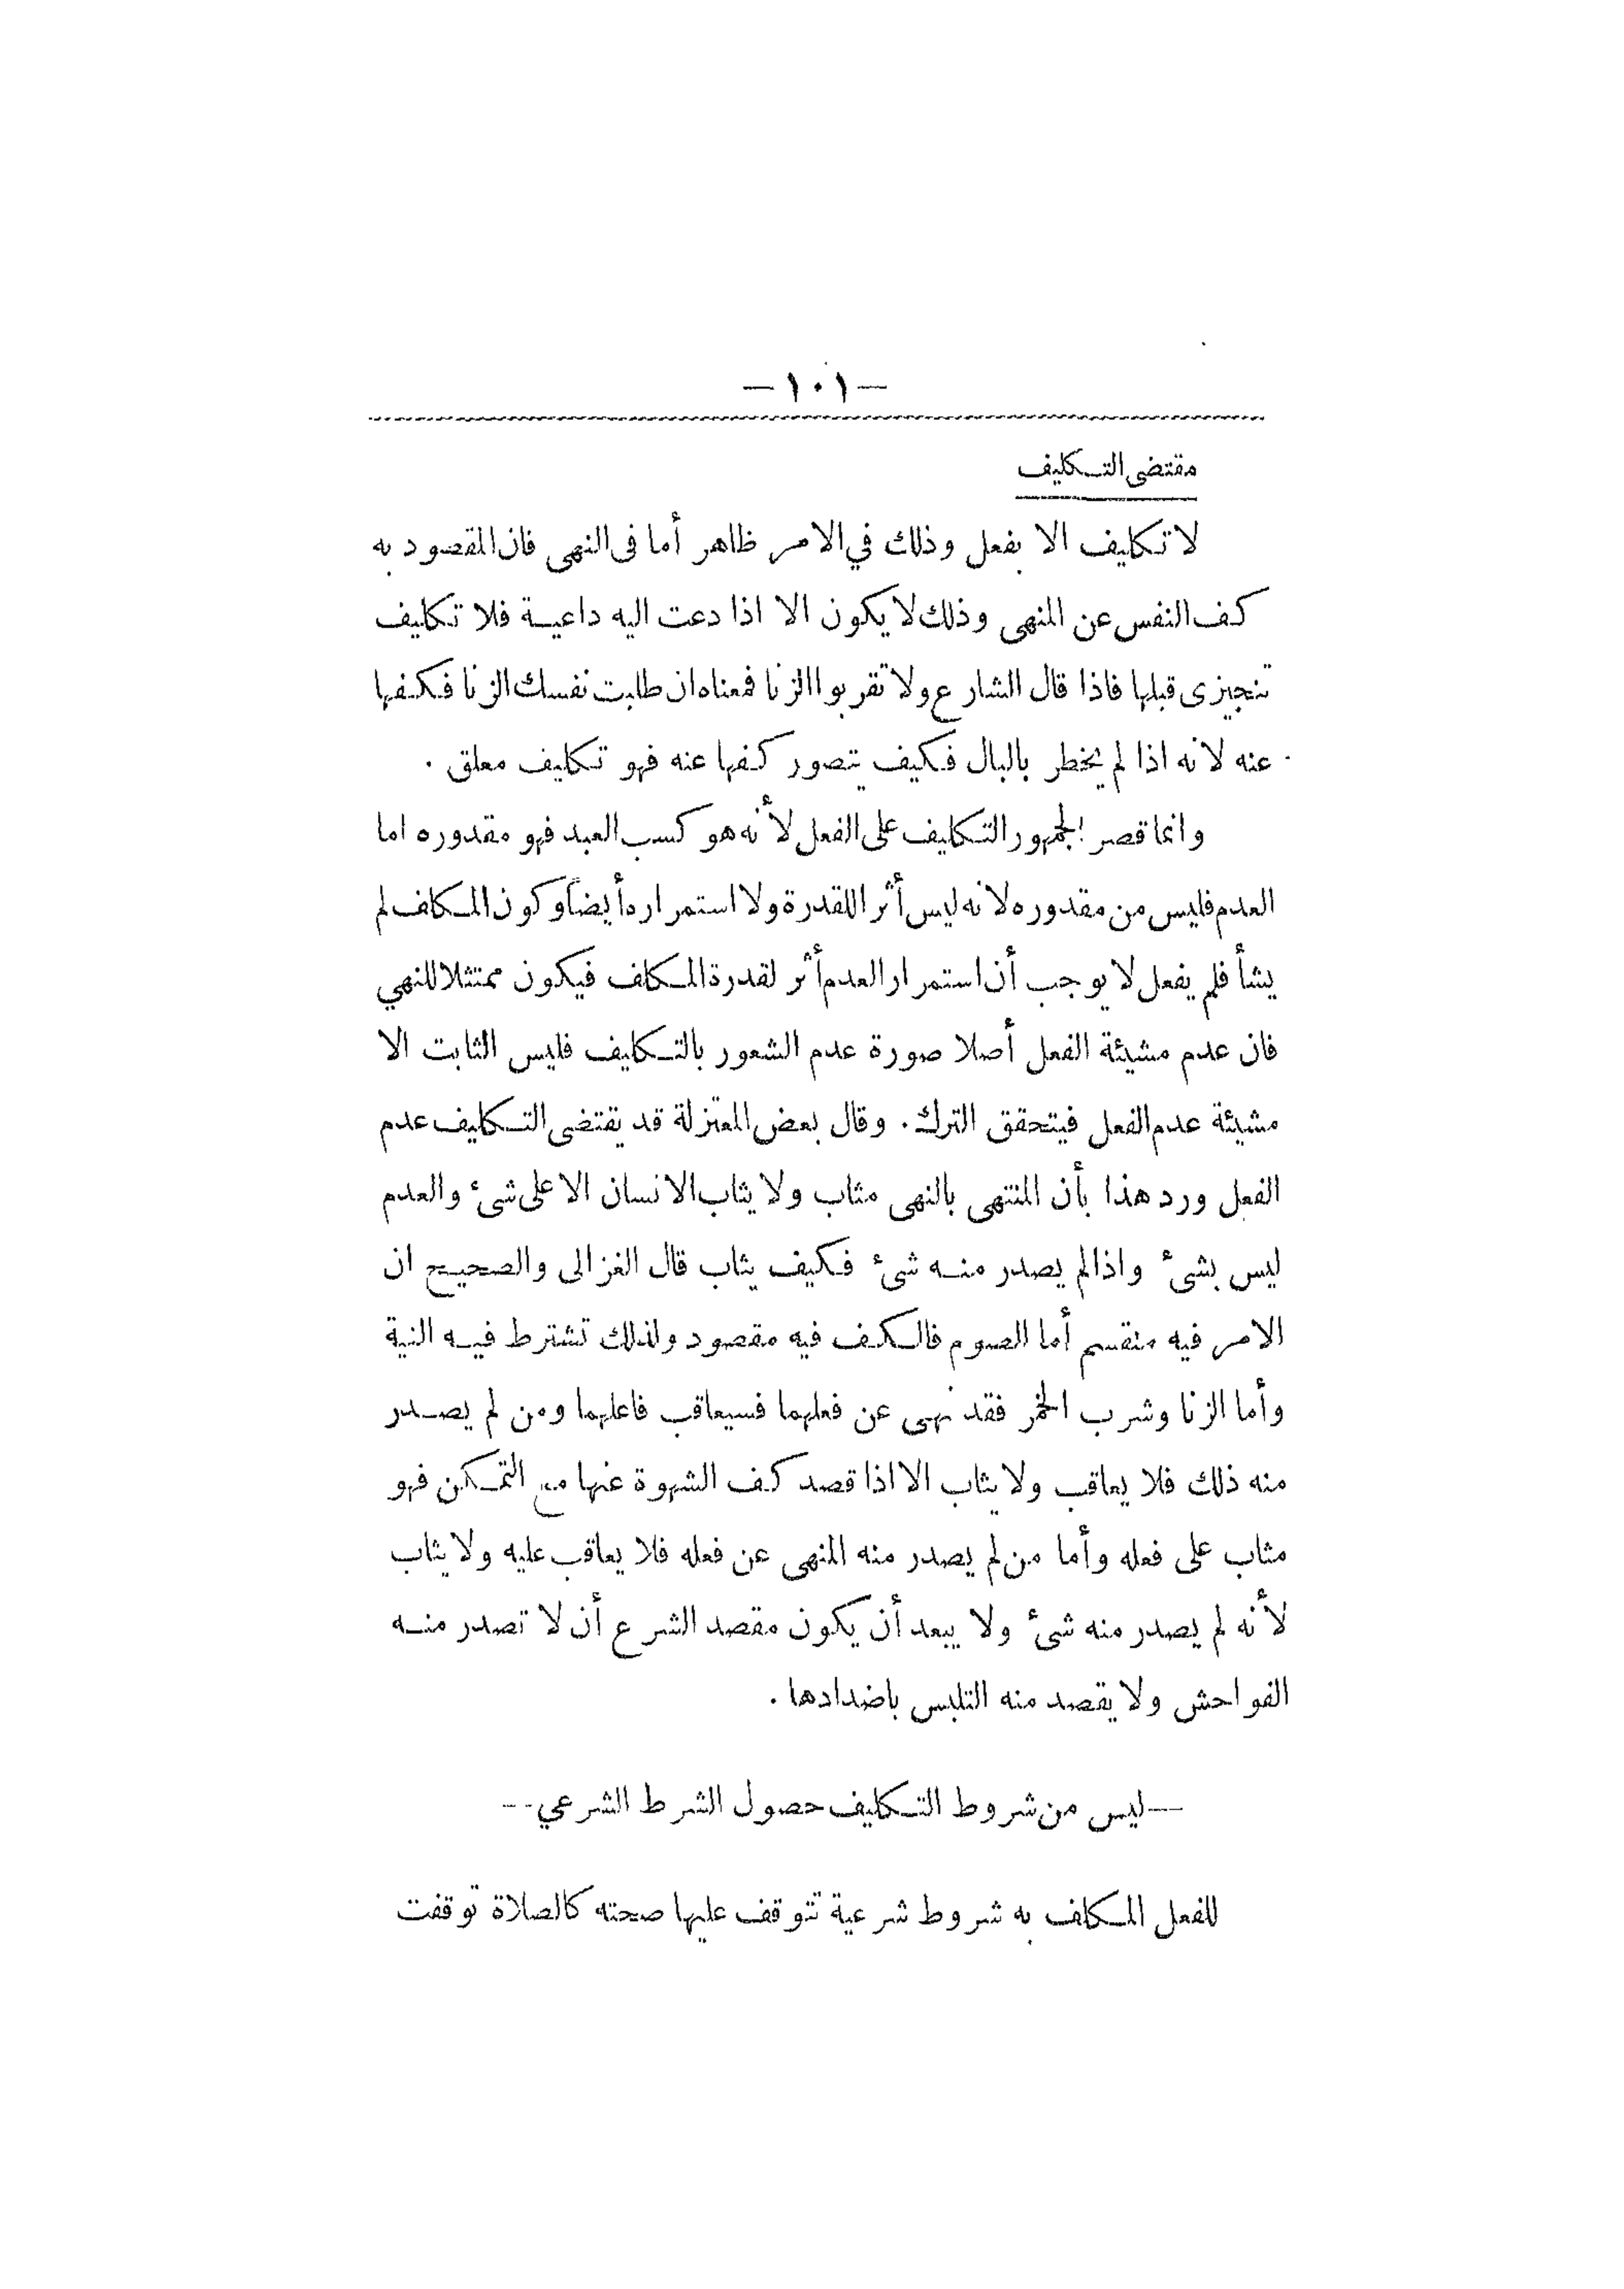 — ١٠١ —
مقتضى التكليف
لا تكليف الا بفعل وذلك في الامر ظاهر أما فى النهى فان المقصود به
كف النفس عن المنهى وذلك لا يكون الا اذا دعت اليه داعية فلا تكليف
تنجيزى قبلها فاذا قال الشارع ولا تقربوا الزنا فمعناه ان طلبت نفسك الزنا فكفها
عنه لانه اذا لم يخطر بالبال فكيف يتصور كفها عنه فهو تكليف معلق .
وانما قصر الجمهور التكليف على الفعل لأنه هو كسب العبد فهو مقدوره اما
العدم فليس من مقدوره لانه ليس أثرا للقدرة ولا استمراره أيضاً وكون المكلف لم
يشأ فلم يفعل لا يوجب أن استمرار العدم أثر لقدرة المكلف فيكون ممتثلا للنهي
فان عدم مشيئة الفعل أصلا صورة عدم الشعور بالتكليف فليس الثابت الا
مشيئة عدم الفعل فيتحقق الترك . وقال بعض المعتزلة قد يقتضى التكليف عدم
الفعل ورد هذا بأن المنتهى بالنهى مثاب ولا يثاب الانسان الا على شىء والعدم
ليس بشىء واذا لم يصدر منه شىء فكيف يثاب قال الغزالى والصحيح ان
الامر فيه منقسم أما الصوم فالكف فيه مقصود ولذلك تشترط فيه النية
وأما الزنا وشرب الخمر فقد نهى عن فعلهما فسيعاقب فاعلهما ومن لم يصدر
منه ذلك فلا يعاقب ولا يثاب الا اذا قصد كف الشهوة عنها مع التمكن فهو
مثاب على فعله وأما من لم يصدر منه المنهى عن فعله فلا يعاقب عليه ولا يثاب
لأنه لم يصدر منه شىء ولا يبعد أن يكون مقصد الشرع أن لا تصدر منه
الفواحش ولا يقصد منه التلبس باضدادها .
—ليس من شروط التكليف حصول الشرط الشرعي--
للفعل المكلف به شروط شرعية تتوقف عليها صحته كالصلاة توقفت